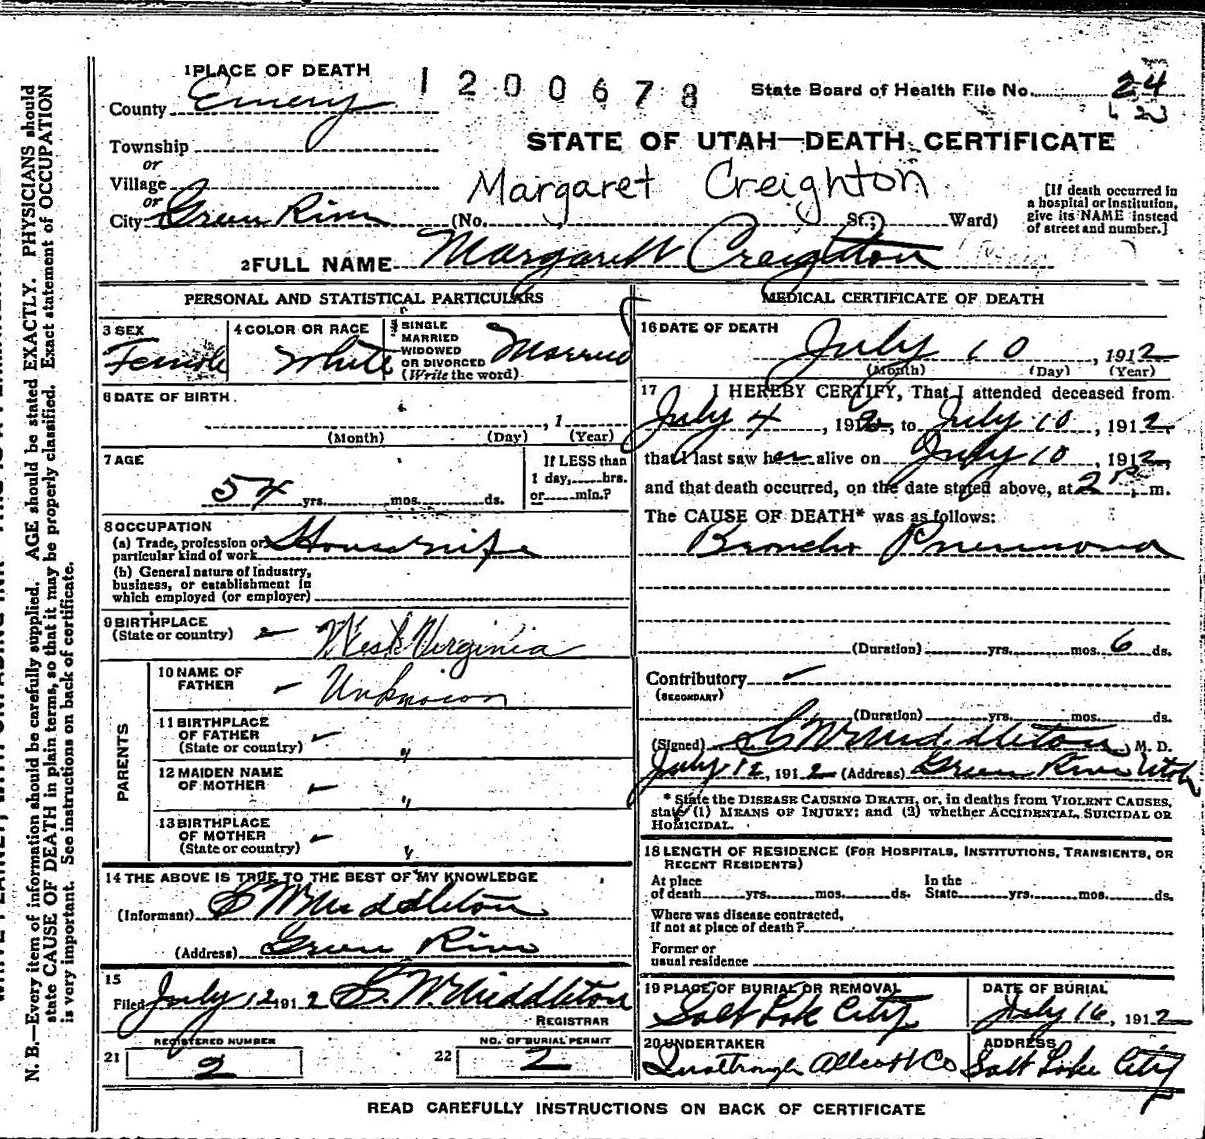 1 PLACE OF DEATH
1200678
State Board of Health File No. 24
County Emery
Township
STATE OF UTAH—DEATH CERTIFICATE
or
Village
Margaret Creighton
or
City Green River (No. St.; Ward)
[If death occurred in
a hospital or institution,
give its NAME instead
of street and number.]
2 FULL NAME Margarett Creighton
PERSONAL AND STATISTICAL PARTICULARS
3 SEX
Female
4 COLOR OR RACE
White
5 SINGLE
MARRIED
WIDOWED
OR DIVORCED
(Write the word)
Married
6 DATE OF BIRTH
, 1
(Month) (Day) (Year)
7 AGE
54 yrs. mos. ds.
If LESS than
1 day, hrs.
or min.?
8 OCCUPATION
(a) Trade, profession or
particular kind of work Housewife
(b) General nature of Industry,
business, or establishment in
which employed (or employer)
9 BIRTHPLACE
(State or country) West Virginia
PARENTS
10 NAME OF
FATHER Unknown
11 BIRTHPLACE
OF FATHER
(State or country) "
12 MAIDEN NAME
OF MOTHER "
13 BIRTHPLACE
OF MOTHER
(State or country) "
14 THE ABOVE IS TRUE TO THE BEST OF MY KNOWLEDGE
(Informant) Middleton
(Address) Green River
15
Filed July 12 1912 Middleton
REGISTRAR
21 REGISTERED NUMBER
2
22 NO. OF BURIAL PERMIT
2
MEDICAL CERTIFICATE OF DEATH
16 DATE OF DEATH
July 10, 1912
(Month) (Day) (Year)
17 I HEREBY CERTIFY, That I attended deceased from
July 4, 1912, to July 10, 1912,
that I last saw her alive on July 10, 1912,
and that death occurred, on the date stated above, at 2 P. m.
The CAUSE OF DEATH* was as follows:
Broncho Pneumonia
(Duration) yrs. mos. 6 ds.
Contributory
(SECONDARY)
(Duration) yrs. mos. ds.
(Signed) Middleton, M. D.
July 12, 1912 (Address) Green River Utah
* State the DISEASE CAUSING DEATH, or, in deaths from VIOLENT CAUSES,
state (1) MEANS OF INJURY; and (2) whether ACCIDENTAL, SUICIDAL OR
HOMICIDAL.
18 LENGTH OF RESIDENCE (FOR HOSPITALS, INSTITUTIONS, TRANSIENTS, OR
RECENT RESIDENTS)
At place
of death yrs. mos. ds.
In the
State yrs. mos. ds.
Where was disease contracted,
if not at place of death?
Former or
usual residence
19 PLACE OF BURIAL OR REMOVAL
Salt Lake City
DATE OF BURIAL
July 16, 1912
20 UNDERTAKER
Co
ADDRESS
Salt Lake City
READ CAREFULLY INSTRUCTIONS ON BACK OF CERTIFICATE
N. B.—Every item of information should be carefully supplied. AGE should be stated EXACTLY. PHYSICIANS should
state CAUSE OF DEATH in plain terms, so that it may be properly classified. Exact statement of OCCUPATION
is very important. See instructions on back of certificate.